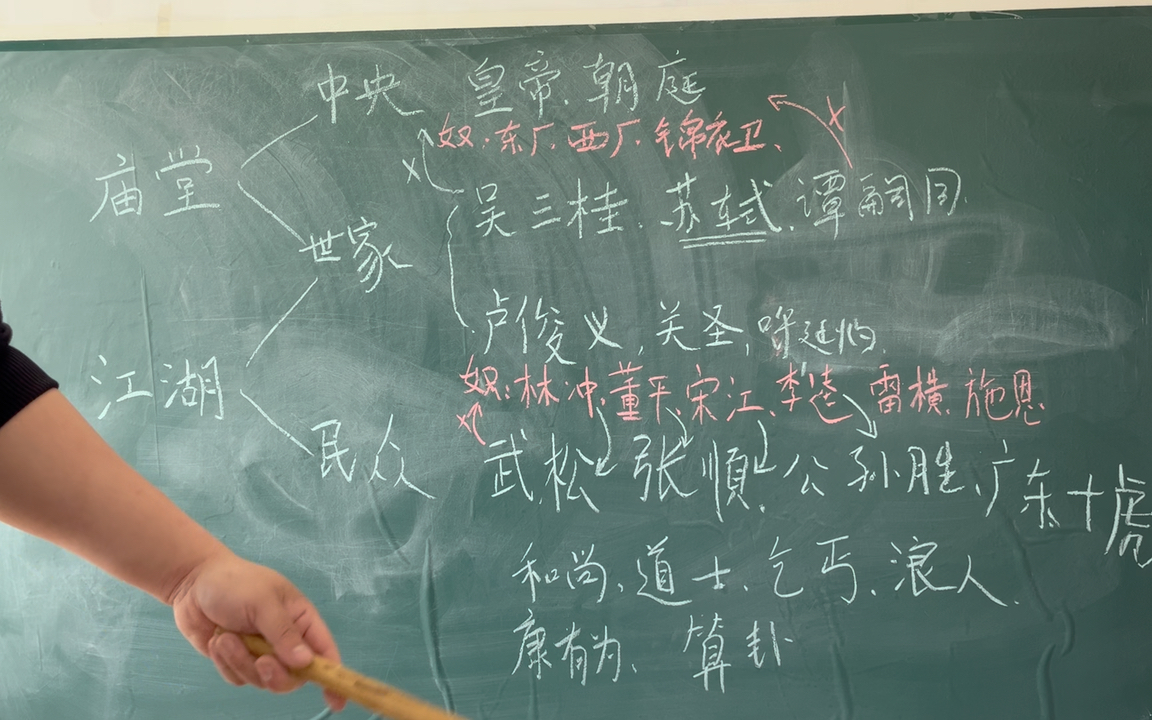 中央 皇帝、朝庭
奴：东厂、西厂、锦衣卫、
庙堂
吴三桂、苏轼、谭嗣同、
世家
卢俊义，关圣，呼延灼，
江湖
奴：林冲、董平、宋江、李逵、雷横、施恩
民众 武松、张顺、公孙胜、广东十虎
和尚、道士、乞丐、浪人、
康有为、算卦